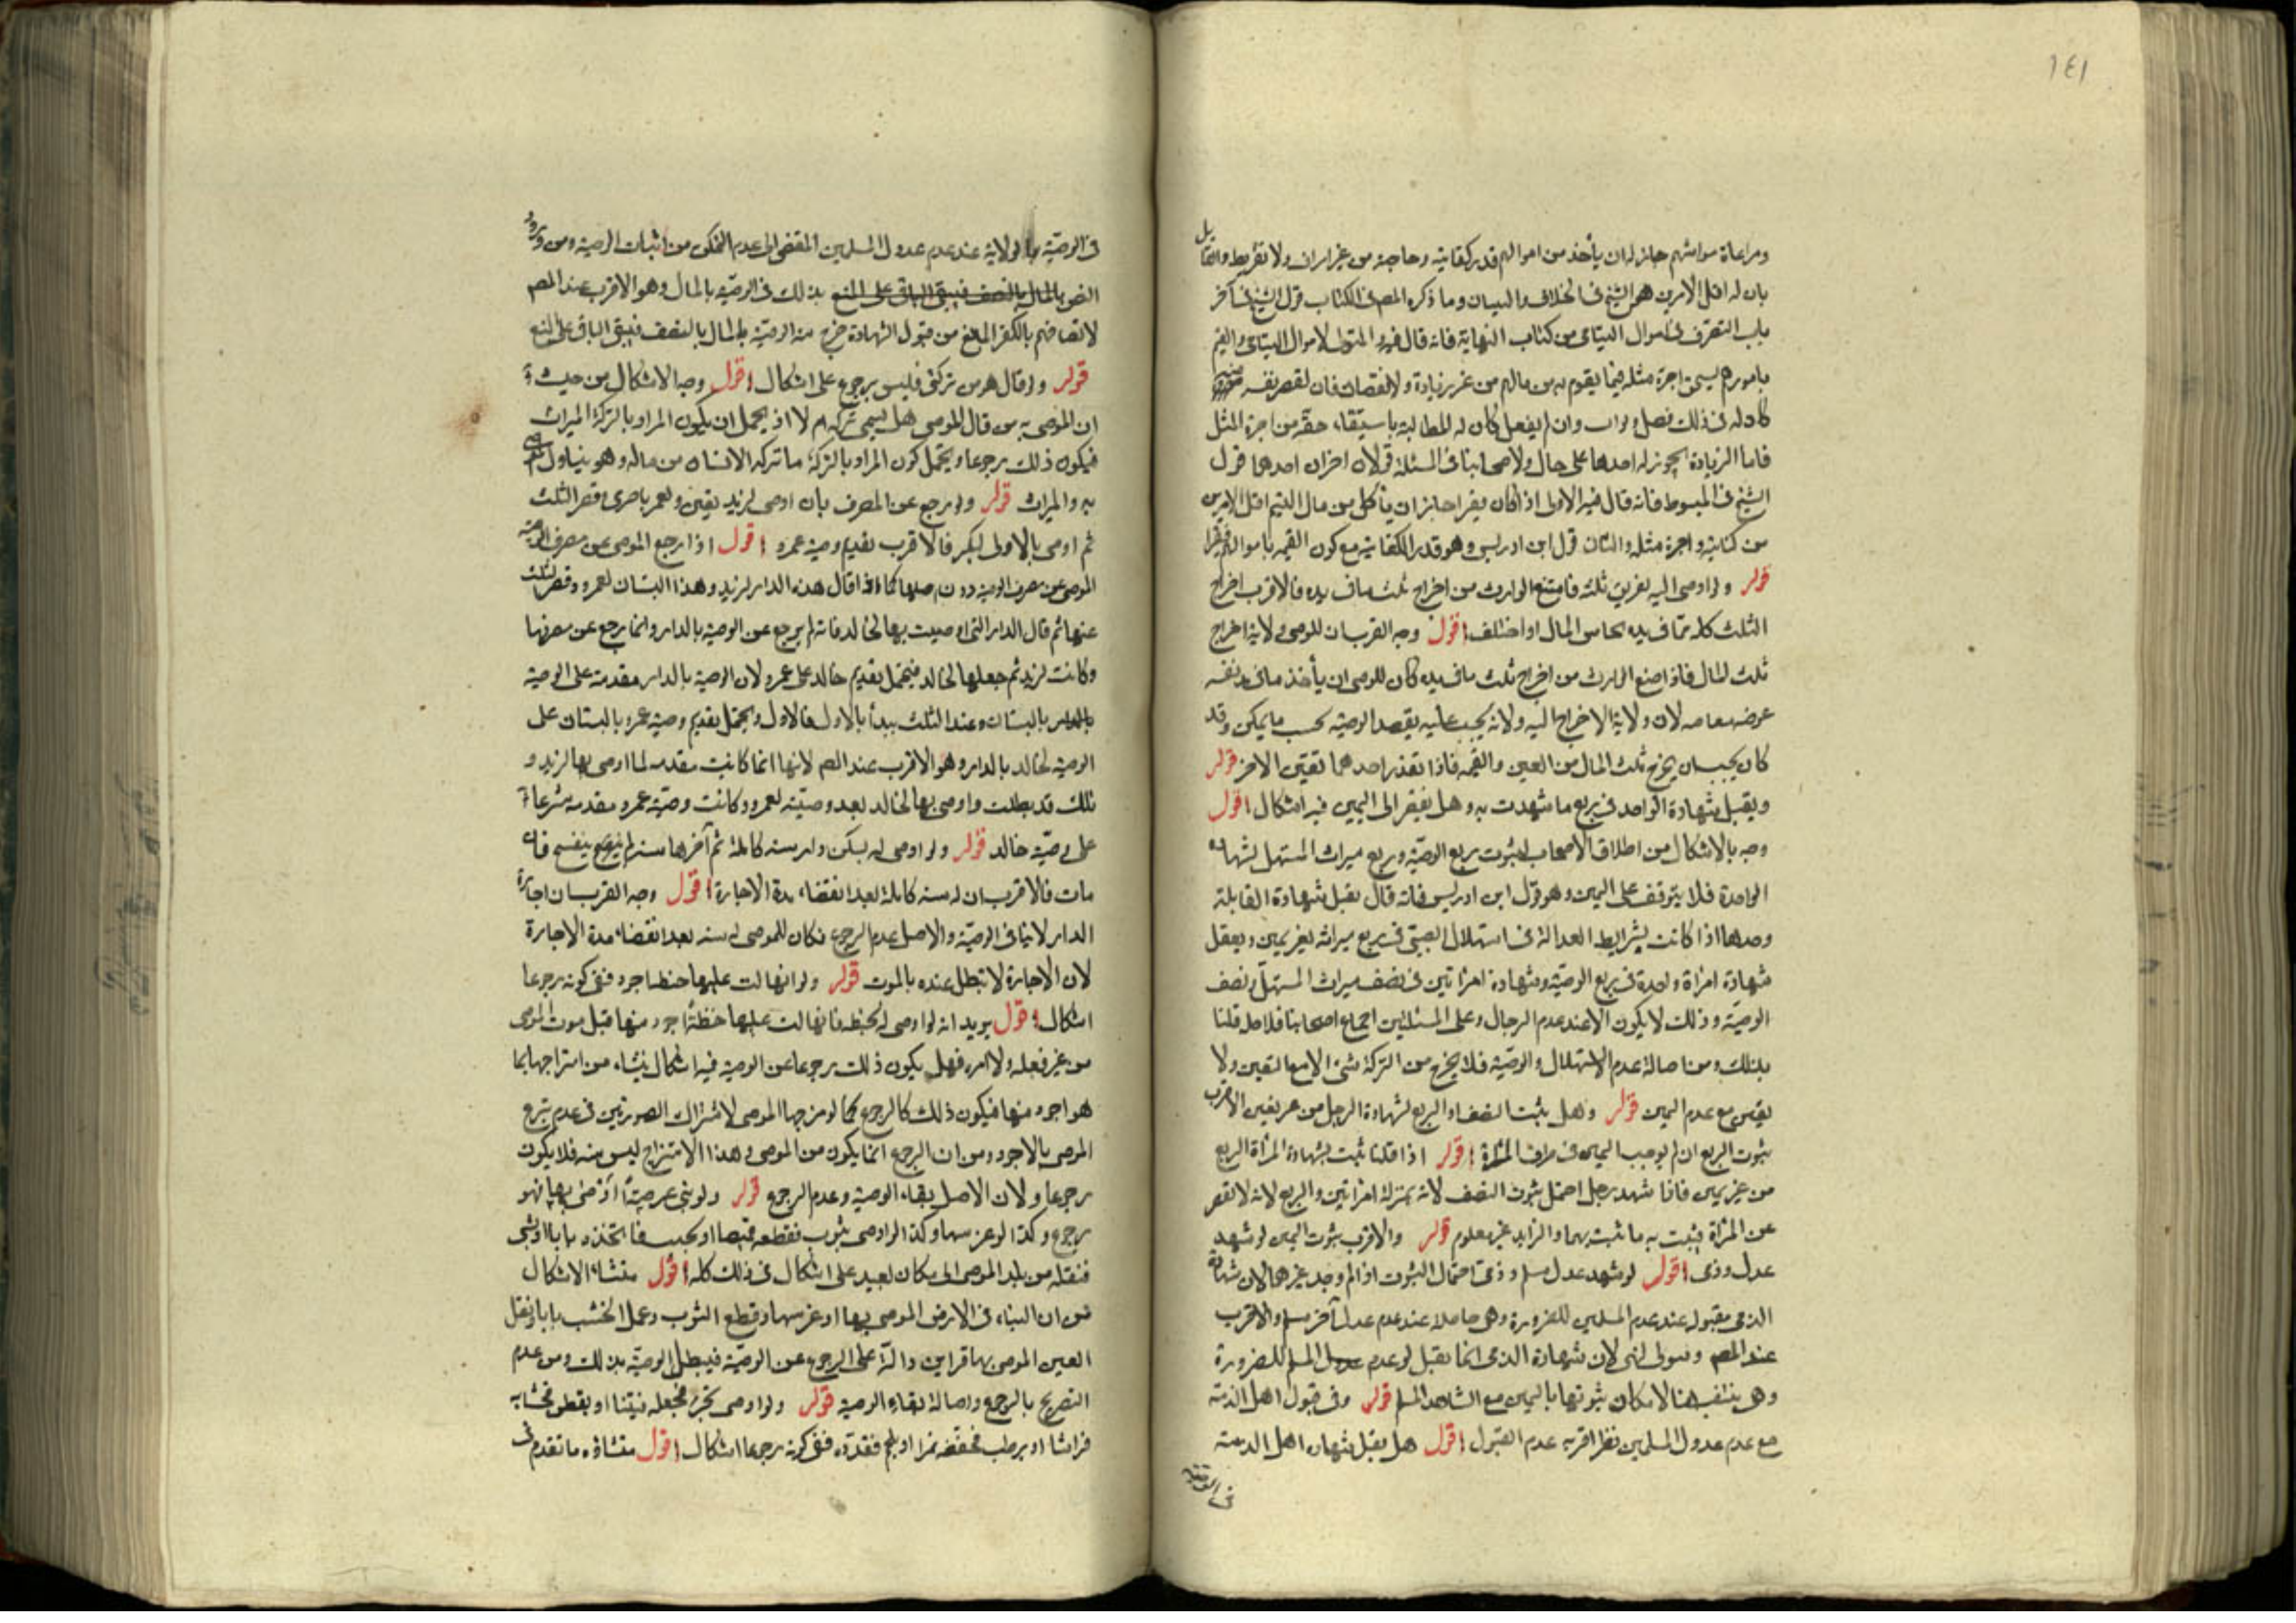 ١٤١
ومراعاة مواشيهم جاز له ان يأخذ من اموالهم قدر كفايته وحاجته من غير اسراف ولا تفريط والقائل
بان له اقل الامرين هو الشيخ فى الخلاف والبيان وما ذكره المصـ فى الكتاب قول الشيخ فى آخر
باب التصرف فى اموال اليتامى من كتاب النهاية فانه قال فيه المتولى لاموال اليتامى والقيم
بامورهم يستحق اجرة مثله فيما يقوم به من مالهم من غير زيادة ولا نقصان فان نقص نفسه
كان له فى ذلك فضل وثواب وان لم يفعل كان له المطالبة باستيفاء حقه من اجرة المثل
فاما الزيادة فلا يجوز له اخذها على حال ولاصحابنا فى المسئلة قولان اخران احدهما قول
الشيخ فى المبسوط فانه قال فيه الاولى اذا كان فقيرا جاز ان يأكل من مال اليتيم اقل الامرين
من كفايته واجرة مثله والثانى قول ابن ادريس وهو قدر الكفاية مع كون القيم باموالهم فقيرا
قوله ولو اوصى اليه بتفريق ثلثه فامتنع الوارث من اخراج ثلث ما فى يده فالاقرب اخراج
الثلث كله مما فى يده تجانس المال او اختلف اقول وجه القرب ان للموصى ولاية اخراج
ثلث المال فاذا امتنع الوارث من اخراج ثلث ما فى يده كان للموصى ان يأخذ ما فى يد نفسه
عوضه مقاصة لان ولاية الاخراج اليه ولانه يجب عليه تنفيذ الوصية بحسب ما يمكن وقد
كان يجب ان يخرج ثلث المال من العين والقيمة فاذا تعذر احدهما تعين الاخر قوله
ويقبل شهادة الواحدة فى ربع ما شهدت به وهل يفتقر الى اليمين فيه اشكال اقول
وجه الاشكال من اطلاق الاصحاب لثبوت ربع الوصية وربع ميراث المستهل بشهادة
الواحدة فلا يتوقف على اليمين وهو قول ابن ادريس فانه قال يقبل شهادة القابلة
وحدها اذا كانت بشرايط العدالة فى استهلال الصبى فى ربع ميراثه بغير يمين ويقبل
شهادة امراة واحدة فى ربع الوصية وشهادة امراتين فى نصف ميراث المستهل ونصف
الوصية وذلك لا يكون الا عند عدم الرجال وعلى المسئلتين اجماع اصحابنا فلاجله قلنا
بذلك ومن اصالة عدم الاستهلال والوصية فلا يخرج من التركة شئ الا مع اليقين ولا
يقين مع عدم اليمين قوله وهل يثبت النصف او الربع بشهادة الرجل من غير يمين الاقرب
ثبوت الربع ان لم نوجب اليمين فى طرف المراة اقول اذا قلنا يثبت بشهادة المراة الربع
من غير يمين فاذا شهد رجل احتمل ثبوت النصف لانه بمنزلة امراتين والربع لانه لا يقصر
عن المراة فيثبت به ما تثبت بها والزايد غير معلوم قوله والاقرب ثبوت اليمين لو شهد
عدل وذمى اقول لو شهد عدل مسلم وذمى احتمال الثبوت اذا لم يوجد غيرهما لان شهادة
الذمى مقبولة عند عدم المسلمين للضرورة وهى حاصلة عند عدم عدل آخر مسلم والاقرب
عند المصـ لان شهادة الذمى انما تقبل لو عدم عدول المسلم للضرورة
وهى منتفية هنا لامكان ثبوتها باليمين مع الشاهد المسلم قوله وفى قبول اهل الذمة
مع عدم عدول المسلمين نظر اقربه عدم القبول اقول هل يقبل شهادة اهل الذمة
فى الوصية
فى الوصية بالولاية عند عدم عدول المسلمين المقتضى الى عدم التمكن من اثبات الوصية ومن ورود
النص بالمال بالنصف فيبقى الباقى على المنع بذلك فى الوصية بالمال وهو الاقرب عند المصـ
لاتصافهم بالكفر المانع من قبول الشهادة خرج منه الوصية بالمال بالنصف فيبقى الباقى على المنع
قوله ولو قال هو من تركتى فليس برجوع على اشكال اقول وجه الاشكال من حيث
ان الموصى به من قال الموصى هل يسمى تركة ام لا اذ يحتمل ان يكون المراد بالتركة الميراث
فيكون ذلك رجوعا ويحتمل كون المراد بالتركة ما تركه الانسان من ماله وهو يتناول الموصى
به والميراث قوله ولو رجع عن المصرف بان اوصى لزيد بعين ولعمر باخرى وقصر الثلث
ثم اوصى بالاولى لبكر فالاقرب تقديم وصية عمرو اقول اذا رجع الموصى عن مصرف الوصية
الموصى عن مصرف الوصية دون اصلها كما اذا قال هذه الدار لزيد وهذا البستان لعمرو وقصر الثلث
عنها ثم قال الدار التى اوصيت بها لخالد فانه لم يرجع عن الوصية بالدار وانما رجع عن مصرفها
وكانت لزيد ثم جعلها لخالد فيحتمل تقديم خالد على عمرو لان الوصية بالدار مقدمة على الوصية
بالبستان وعند الثلث يبدأ بالاول فالاول ويحتمل تقديم وصية عمرو بالبستان على
الوصية لخالد بالدار وهو الاقرب عند المصـ لانها انما كانت مقدمة لما اوصى بها لزيد و
تلك قد بطلت واوصى بها لخالد بعد وصيته لعمرو وكانت وصية عمرو مقدمة شرعا
على وصية خالد قوله ولو اوصى له بسكنى دار سنة كاملة ثم آجرها سنة لم ينفسخ فان
مات فالاقرب ان له سنة كاملة بعد انقضاء مدة الاجارة اقول وجه القرب ان اجارة
الدار لا ينافى الوصية والاصل عدم الرجوع فكان للموصى له سنة بعد انقضاء مدة الاجارة
لان الاجارة لا تبطل عنده بالموت قوله ولو انهالت عليها حنطة اجود ففى كونه رجوعا
اشكال اقول يريد انه لو اوصى له بحنطة فانهالت عليها حنطة اجود منها قبل موت الموصى
من غير فعله ولا امره فهل يكون ذلك رجوعا عن الوصية فيه اشكال ينشاء من امتزاجها بما
هو اجود منها فيكون ذلك كالرجوع كما لو مزجها الموصى لاشتراك الصورتين فى عدم تبرع
الموصى بالاجود ومن ان الرجوع انما يكون من الموصى وهذا الامتزاج ليس منه فلا يكون
رجوعا ولان الاصل بقاء الوصية وعدم الرجوع قوله ولو بنى عرصة اوصى بها فهو
رجوع وكذا لو غرسها وكذا لو اوصى بثوب فقطعه قميصا او بخشب فاتخذه بابا او بشئ
فنقله من بلد الموصى الى مكان بعيد على اشكال فى ذلك كله اقول منشاء الاشكال
من ان البناء فى الارض الموصى بها او غرسها وقطع الثوب وعمل الخشب بابا ونقل
العين الموصى بها قراين دالة على الرجوع عن الوصية فيبطل الوصية بذلك ومن عدم
التصريح بالرجوع واصالة بقاء الوصية قوله ولو اوصى بخبز فجعله فتيتا او بقطن فحشا به
فراشا او برطب فجففه تمرا او بلحم فقدده ففى كونه رجوعا اشكال اقول منشاؤه ما تقدم فى